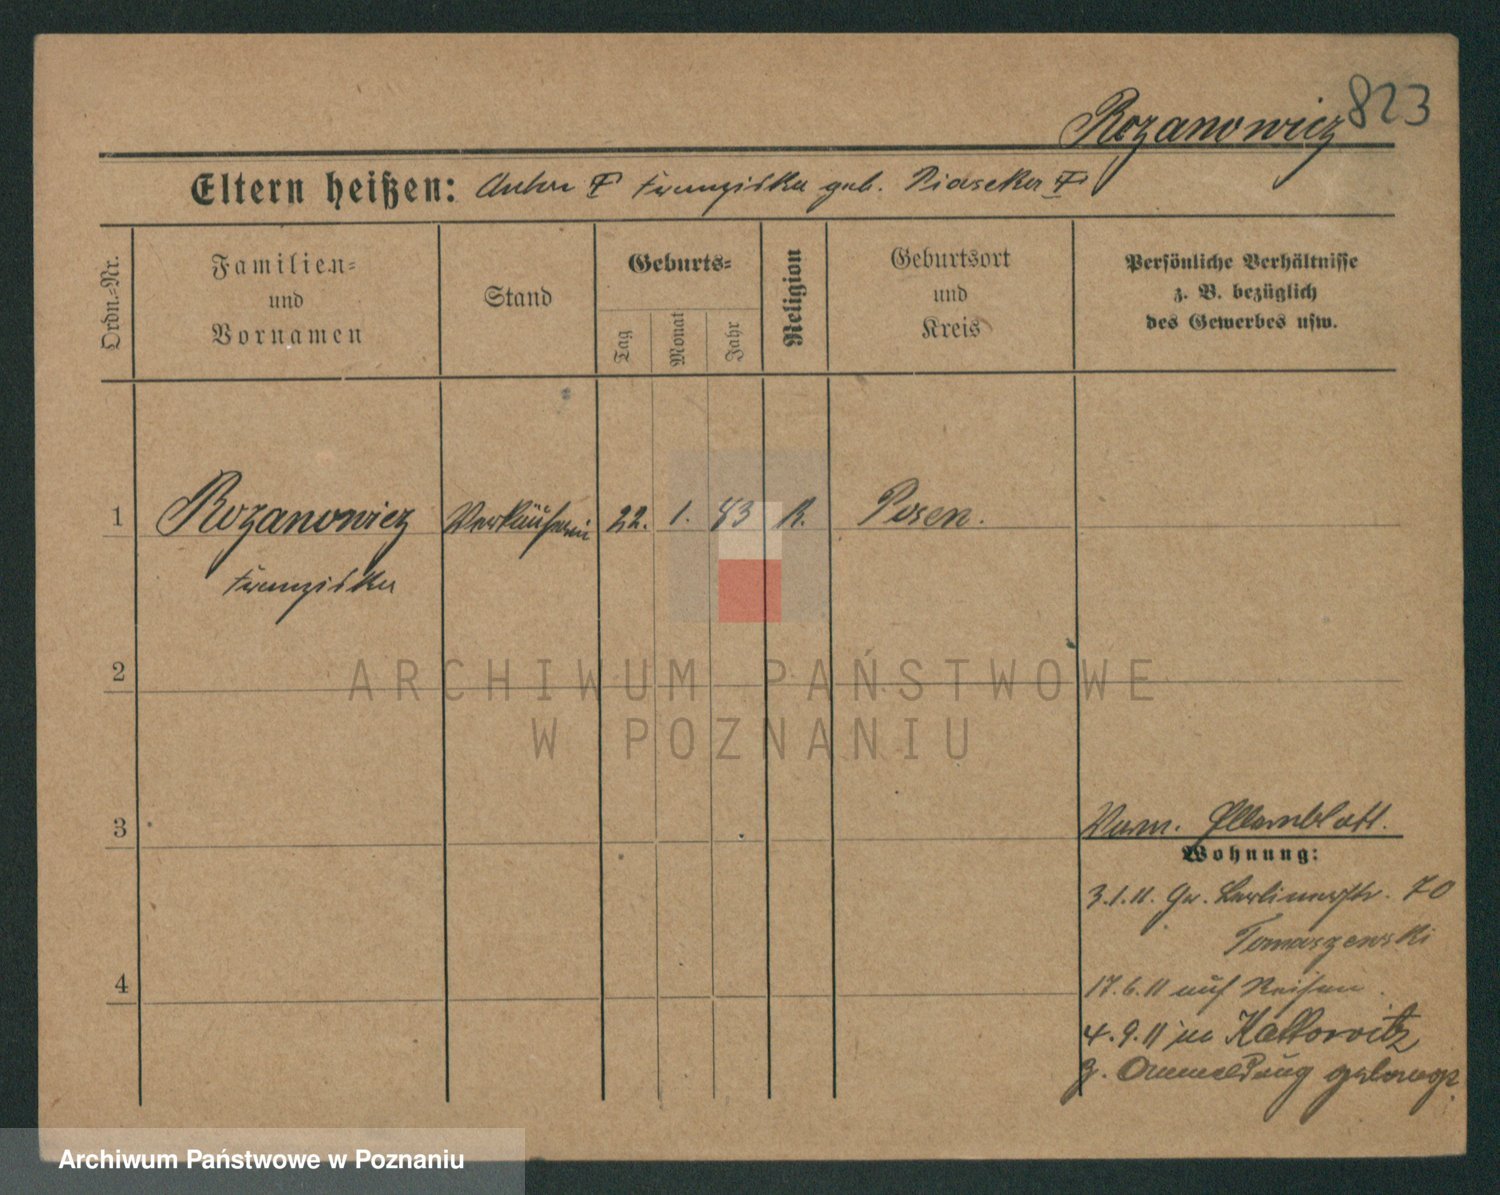 Rozanowicz 823
Eltern heißen: Anton † Franziska geb. Piasecka †
Ordn.-Nr.
Familien-
und
Vornamen
Stand
Geburts-
Tag
Monat
Jahr
Religion
Geburtsort
und
Kreis
Persönliche Verhältnisse
z. B. bezüglich
des Gewerbes usw.
1 Rozanowicz Verkäuferin 22. 1. 83 R. Posen.
Franziska
2
ARCHIWUM PAŃSTWOWE
W POZNANIU
3
Elternblatt.
Wohnung:
3.1.11. Gr. Berlinerstr. 70
Tomaszewski
4
17.6.11 auf Reisen.
4.9.11 in Kattowitz
z. Anmeldung gelangt.
Archiwum Państwowe w Poznaniu